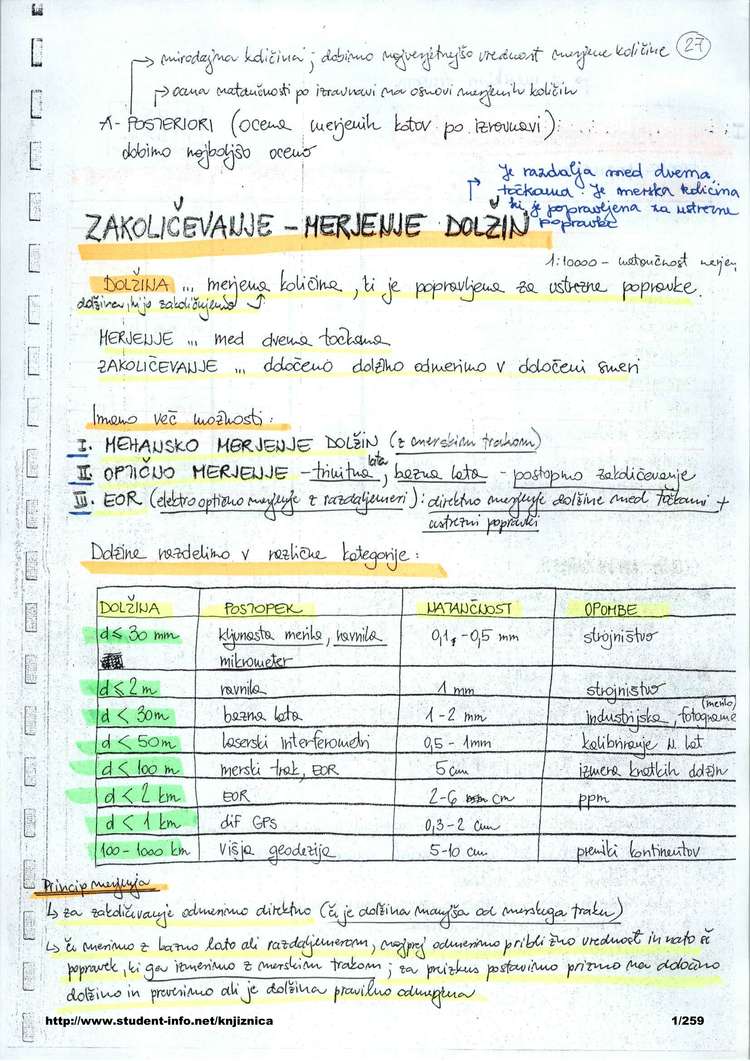 27
→ mirodajna količina ; dobimo najverjetnejšo vrednost merjene količine
→ ocena natančnosti po izravnavi na osnovi merjenih količin
A-POSTERIORI (ocena merjenih kotov po izravnavi):
dobimo najboljšo oceno
je razdalja med dvema
točkama. Je merska količina
ki je popravljena za ustrezne
popravke
ZAKOLIČEVANJE – MERJENJE DOLŽIN
1:10000 - natančnost merjen
DOLŽINA ... merjena količina, ki je popravljena za ustrezne popravke.
dolžina, ki jo zakoličujemo
MERJENJE ... med dvema točkama
ZAKOLIČEVANJE ... določeno dolžino odmerimo v določeni smeri
Imamo več možnosti:
I. MEHANSKO MERJENJE DOLŽIN (z merskim trakom)
II. OPTIČNO MERJENJE – lata, bazna lata - postopno zakoličevanje
III. EOR (elektrooptično merjenje z razdaljemeri): direktno merjenje dolžine med točkami +
ustrezni popravki
Dolžine razdelimo v različne kategorije:
DOLŽINA POSTOPEK NATANČNOST OPOMBE
d ≤ 30 mm kljunasta merila, ravnila 0,1 - 0,5 mm strojništvo
mikrometer
d ≤ 2 m ravnila 1 mm strojništvo
d < 30 m bazna lata 1 - 2 mm Industrijska, fotograme
(merila)
d < 50 m laserski interferometri 0,5 - 1mm kalibriranje N. lat
d < 100 m merski trak, EOR 5 cm izmera kratkih dolžin
d < 2 km EOR 2-6 cm ppm
d < 1 km dif GPS 0,3-2 cm
100 - 1000 km višja geodezija 5-10 cm premiki kontinentov
Princip merjenja
↳ za zakoličevanje odmerimo direktno (če je dolžina manjša od merskega traku)
↳ če merimo z bazno lato ali razdaljemerom, najprej odmerimo približno vrednost in nato še
popravek, ki ga izmerimo z merskim trakom ; za preizkus postavimo prizmo na določeno
dolžino in preverimo ali je dolžina pravilno odmerjena
http://www.student-info.net/knjiznica 1/259